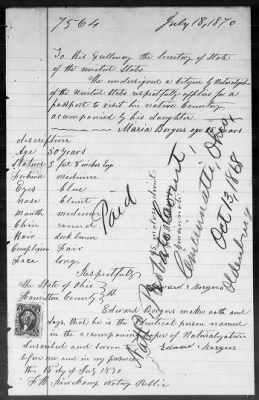 7564
July 18, 1870
To His Excellency the Secretary of State
of the United States
The undersigned a Citizen by Naturalization
of the United States respectfully applies for a
passport to visit his native Country
accompanied by his daughter
Maria Borgers age 18 years
description
Age 50 years
Stature 5 feet 8 inches Eng
forehead medium
Eyes blue
nose blunt
mouth medium
Chin round
Hair dark brown
Complexion Fair
Face long
Paid
Cincinnati Ohio
Oct 13, 1868
Oldenburg
Respectfully
Edward Borgers
The State of Ohio
Hamilton County SS
Edward Borgers makes oath and
says, that he is the identical person named
in the accompanying paper of Naturalization
Edward Borgers
before me and in my presence
this 15 day of July 1870
Notary Public